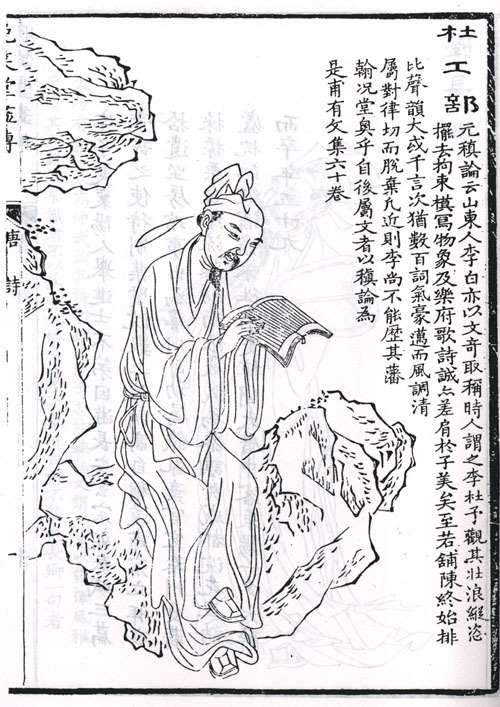 杜工部
元稹論云山東人李白亦以文奇取稱時人謂之李杜予觀其壯浪縱恣
擺去拘束模寫物象及樂府歌詩誠亦差肩於子美矣至若鋪陳終始排
比聲韻大或千言次猶數百詞氣豪邁而風調清
屬對律切而脫棄凡近則李尚不能歷其藩
翰况堂奧乎自後屬文者以稹論為
是甫有文集六十卷
笑堂畫傳
唐 詩
一